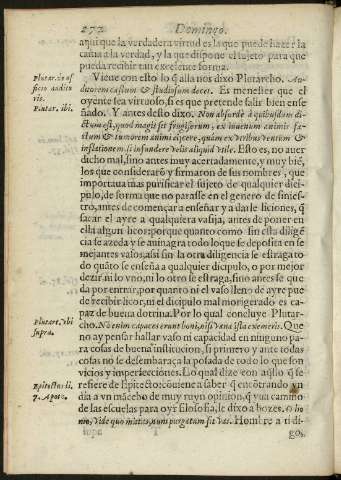 272 Domingo.
aqui que la verdadera virtud es la que puede hazer la
casa a la verdad, y la que dispone el sujeto para que
pueda recibir tan excelente forma.
Viene con esto lo q̃ alla nos dixo Plutarcho. Au-
ditorem castum & studiosum decet. Es menester que el
oyente sea virtuoso, si es que pretende salir bien ense
ñado. Y antes desto dixo. Non absurdè à quibusdam di-
ctum est, quod magis sit frugiferum, ex iuuenum animis fa-
stum & tumorem animi
inflationem si infundere velis aliquid vtile. Esto es, no auer
dicho mal, sino antes muy acertadamente, y muy biẽ,
los que consideraro y firmaron de sus nombres, que
importaua mas purificar el sujeto de qualquier dici-
pulo, de forma que no parasse en el genero de sinies-
tro, antes de començar a enseñar y a darle liciones, q̃
sacar el ayre a qualquiera vasija, antes de poner en
ella algun licor: porque quanto como sin esta diligẽ
cia se azeda y se auinagra todo lo que se deposita en se
mejantes vasos, assi sin la otra diligencia se estraga to-
do quãto se enseña a qualquier dicipulo, o por mejor
dezir ni lo vno, ni lo otro se estraga, sino antes se que
da por entrar, por quanto ni el vaso lleno de ayre pue
de recibir licor, ni el dicipulo mal morigerado es ca-
paz de buena dotrina. Por lo qual concluye Plutar-
cho. Non enim capaces erunt boni, nisi vana ista exemeris. Que
no ay pensar hallar vaso ni capacidad en ninguno pa-
ra cosas de buena institucion, si primero y ante todas
cosas no se desembaraça la posada de todo lo que son
vicios y imperfecciones. Lo qual dize con aq̃llo q̃ se
refiere de Epitecto: conuiene a saber q̃ encõtrando vn
dia a vn mãcebo de muy ruyn opinion, q̃ yua camino
de las escuelas para oyr filosofia, le dixo a bozes. O ho
mo, vide quo
go,
Plutar. de of
ficio audito
ris.
Plutar. ibi.
Plutarc. vbi
supra.
Epitectus li.